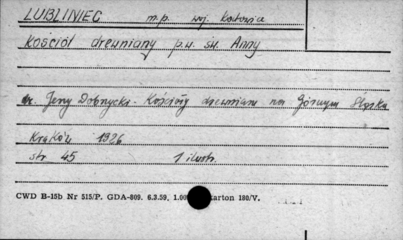 LUBLINIEC m.p. woj. Katowice
Kościół drewniany p.w. św. Anny
Jerzy Dobrzycki - Kościoły drewniane na Górnym Śląsku
Kraków 1926
str 45 1 ilustr.
CWD B-15b Nr 515/P. GDA-809. 6.3.59, 1.00 karton 180/V.